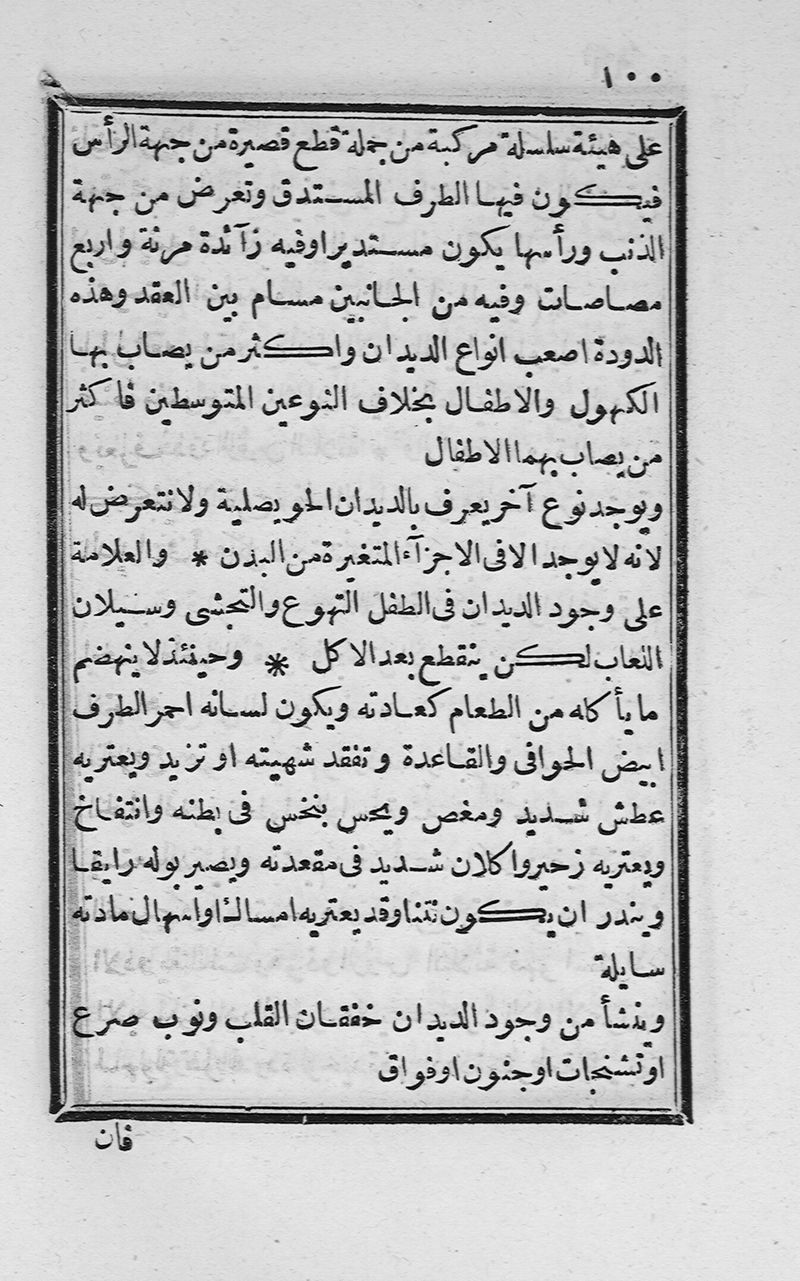 ١٠٠
على هيئة سلسلة مركبة من جملة قطع قصيرة من جهة الرأس
فيكون فيها الطرف المستدق وتعرض من جهة
الذنب ورأسها يكون مستديرا وفيه زآئدة مرنة واربع
مصاصات وفيه من الجانبين مسام بين العقد وهذه
الدودة اصعب انواع الديدان واكثر من يصاب بها
الكهول والاطفال بخلاف النوعين المتوسطين فاكثر
من يصاب بهما الاطفال
ويوجد نوع آخر يعرف بالديدان الحويصلية ولا نتعرض له
لانه لا يوجد الا فى الاجزآء المتغيرة من البدن * والعلامة
على وجود الديدان فى الطفل التهوع والتجشى وسيلان
اللعاب لكن ينقطع بعد الاكل * وحينئذ لا ينهضم
ما يأكله من الطعام كعادته ويكون لسانه احمر الطرف
ابيض الحوافى والقاعدة وتفقد شهيته او تزيد ويعتريه
عطش شديد ومغص ويحس بنخس فى بطنه وانتفاخ
ويعتريه زحير واكلان شديد فى مقعدته ويصير بوله رايقا
ويندر ان يكون نتنا وقد يعتريه امساك او اسهال مادته
سايلة
وينشأ من وجود الديدان خفقان القلب ونوب صرع
او تشنجات او جنون او فواق
فان